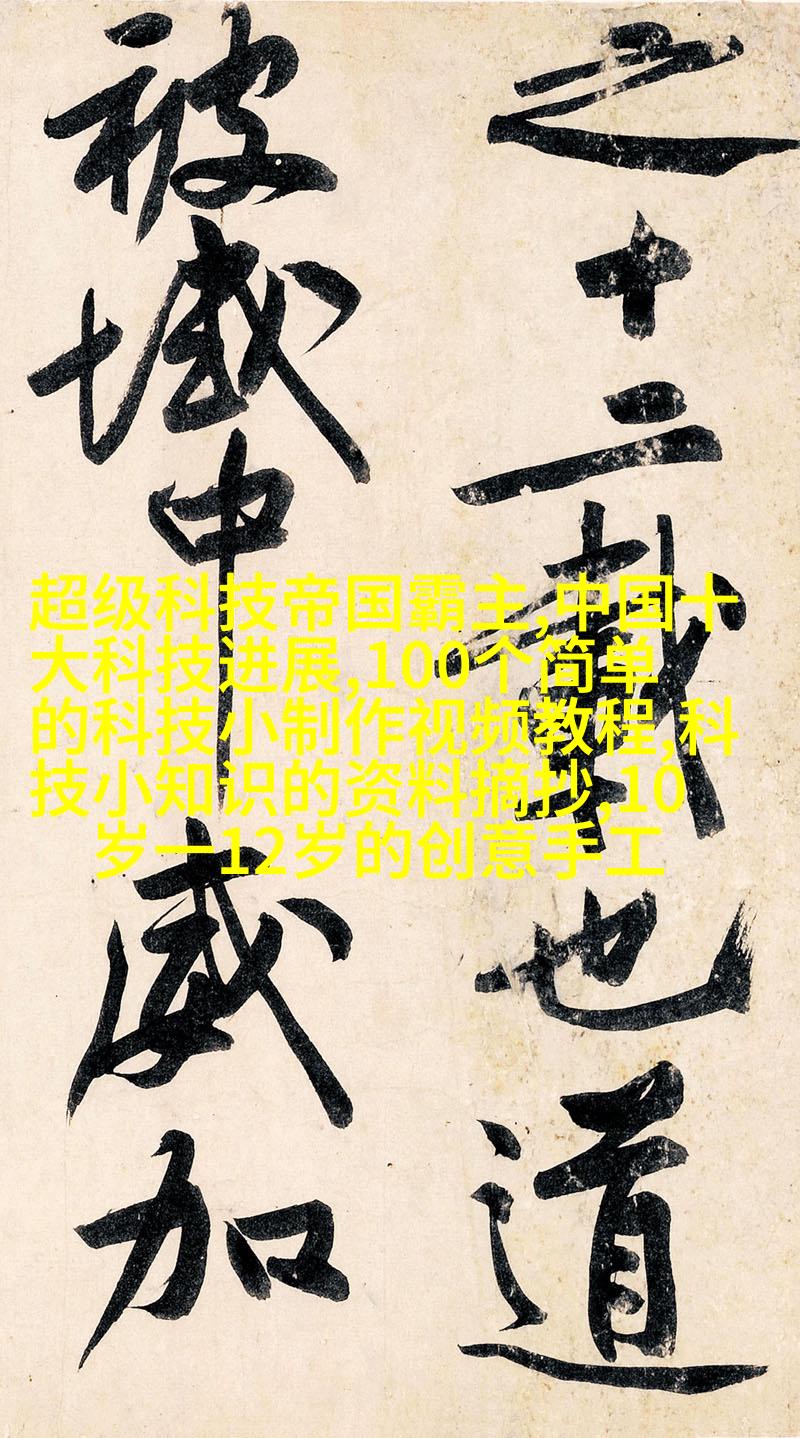 之十二載也道
被域中威加
超级科技帝国霸主,中国十
大科技进展,100个简单
的科技小制作视频教程,科
技小知识的资料摘抄,10
岁一12岁的创意手工